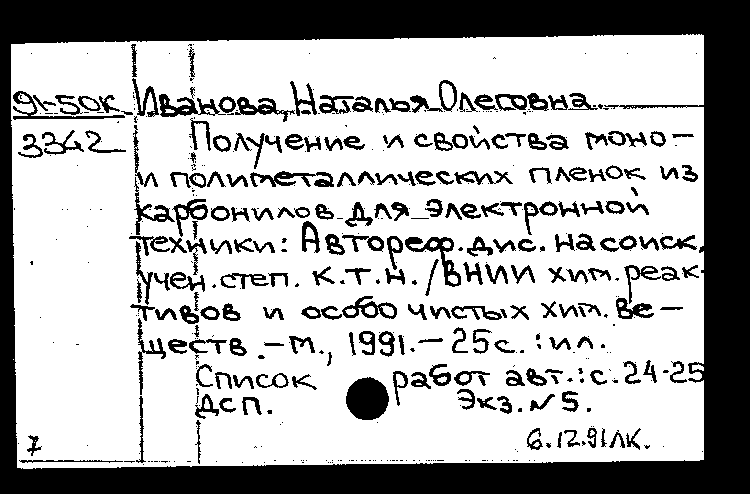 91-50К Иванова, Наталья Олеговна
3342 Получение и свойства моно-
и полиметаллических пленок из
карбонилов для электронной
техники: Автореф. дис. на соиск.
учен. степ. к.т.н. / ВНИИ хим. реак-
тивов и особо чистых хим. ве-
ществ. - М., 1991. - 25 с. : ил.
Список работ авт.: с. 24-25
Дсп. Экз. N 5.
6.12.91 ЛК.